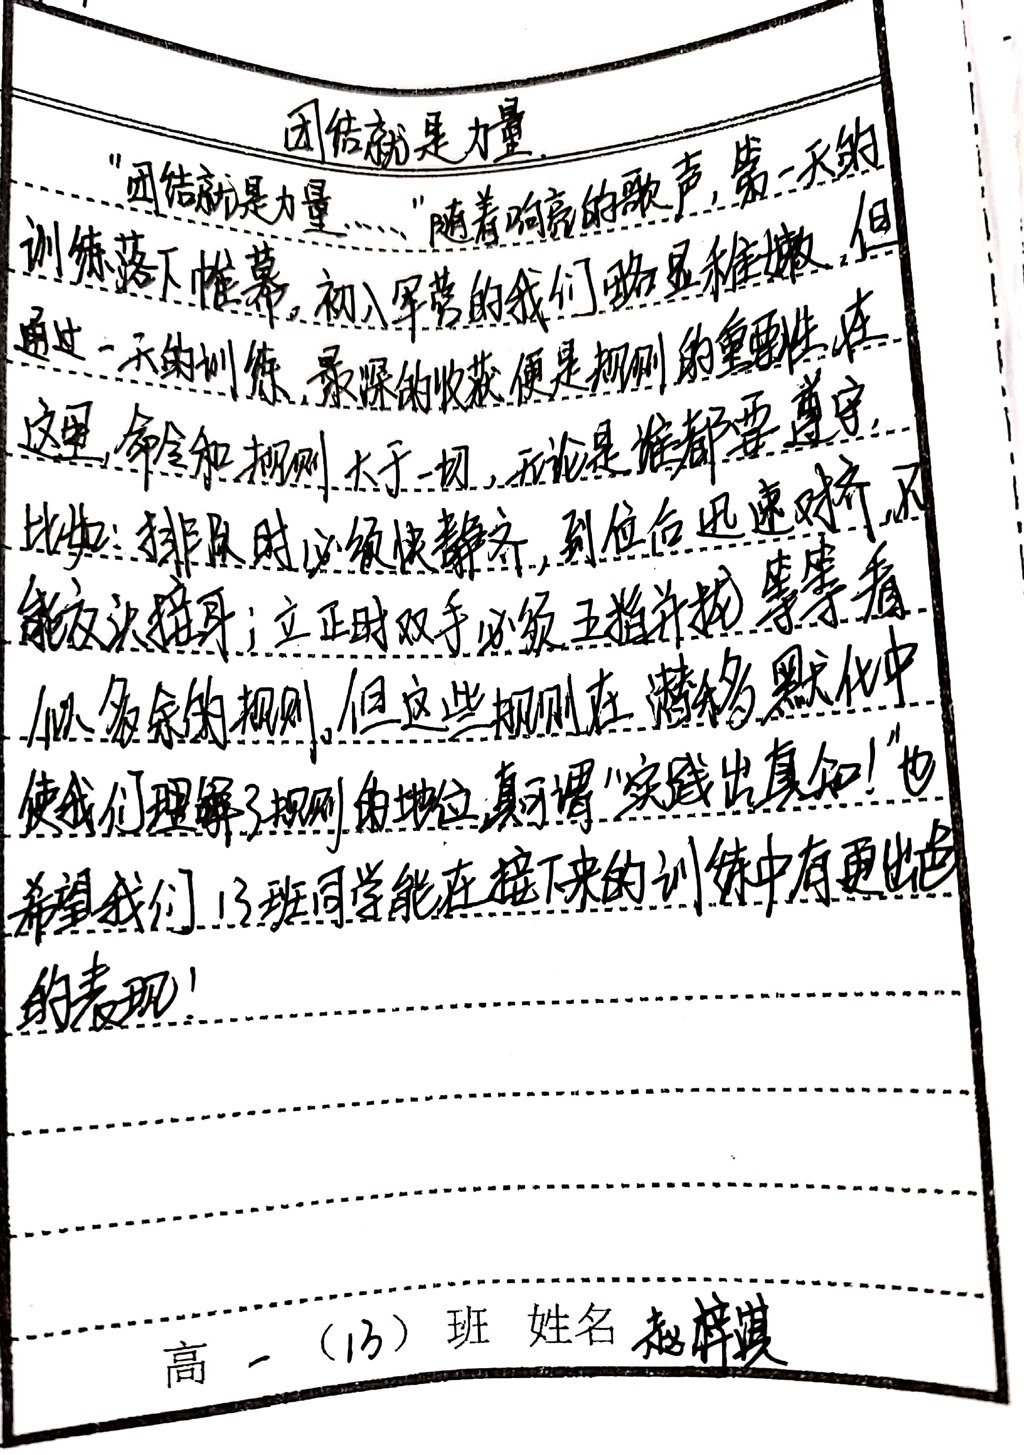 团结就是力量.
"团结就是力量……"随着响亮的歌声，第一天的
训练落下帷幕。初入军营的我们略显稚嫩，但
通过一天的训练，最深的收获便是规则的重要性，在
这里，命令和规则大于一切，无论是谁都要遵守，
比如：排队时必须快静齐，到位后迅速对齐，不
能交头接耳；立正时双手必须五指并拢等等看
似多余的规则。但这些规则在潜移默化中
使我们理解了规则的地位，真可谓"实践出真知！"也
希望我们13班同学能在接下来的训练中有更出色
的表现！
高一（13）班 姓名 赵梓淇